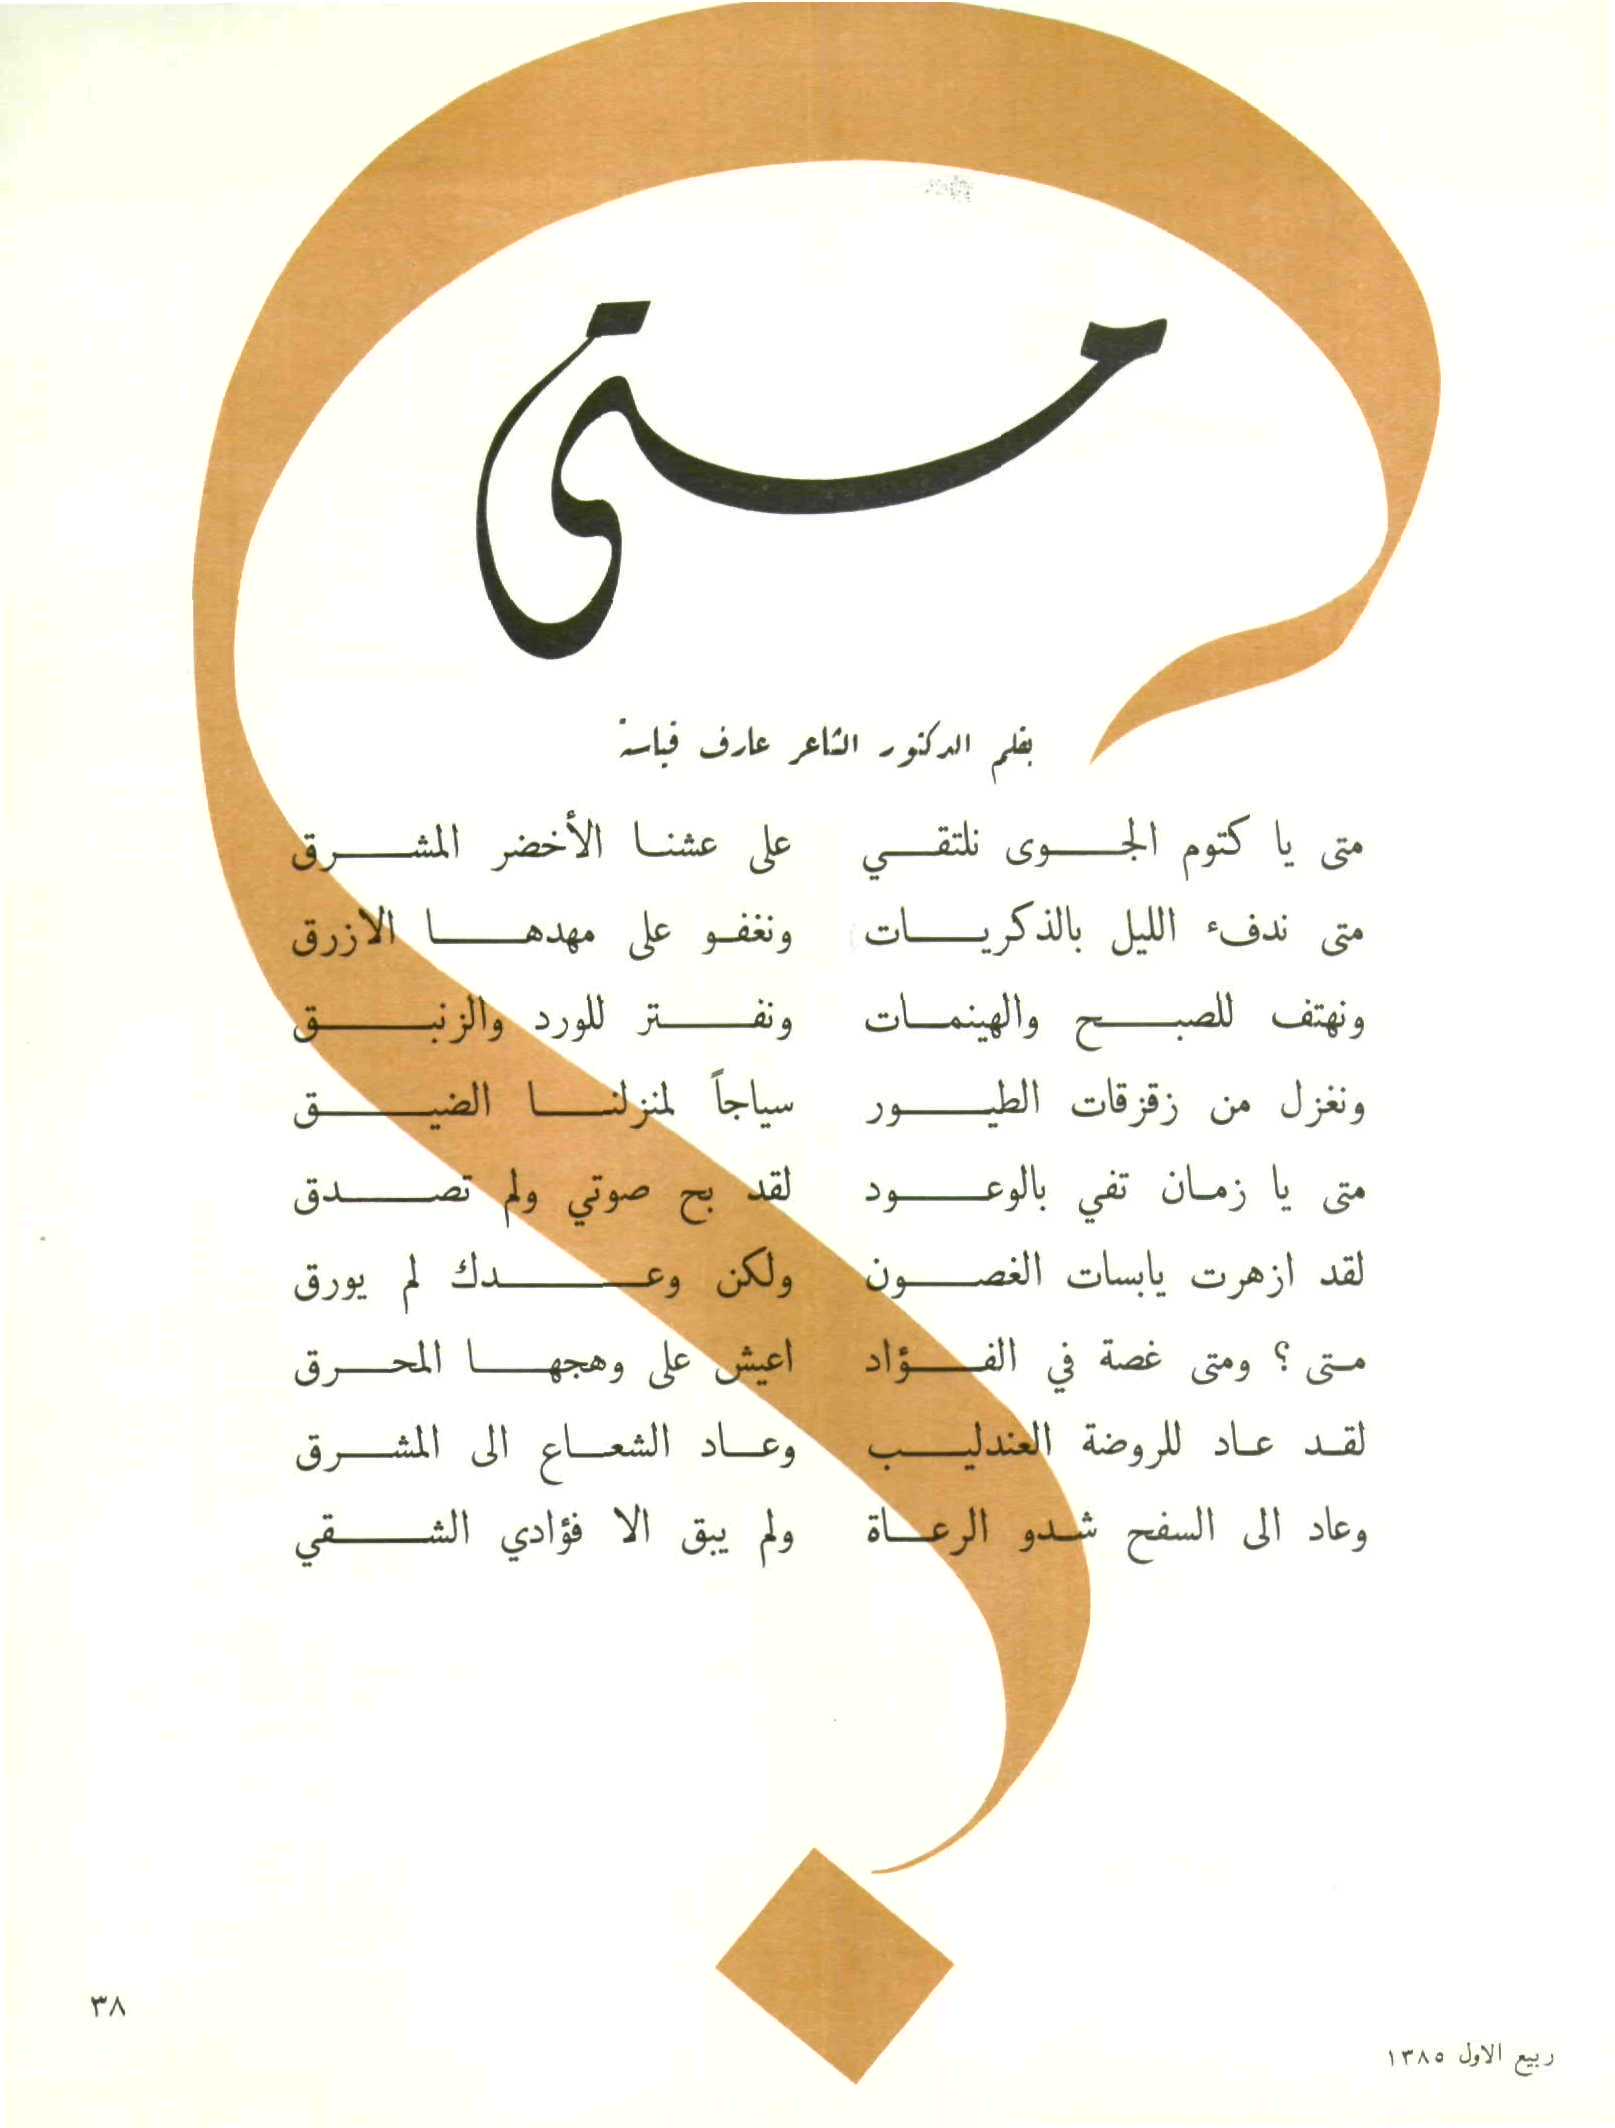 متى
بقلم الدكتور الشاعر عارف قياسة
متى يا كتوم الجوى نلتقي على عشنا الأخضر المشرق
متى ندفء الليل بالذكريات ونغفو على مهدها الازرق
ونهتف للصبح والهينمات ونفتر للورد والزنبق
ونغزل من زقزقات الطيور سياجاً لمنزلنا الضيق
متى يا زمان تفي بالوعود لقد بح صوتي ولم تصدق
لقد ازهرت يابسات الغصون ولكن وعدك لم يورق
متى ؟ ومتى غصة في الفؤاد اعيش على وهجها المحرق
لقد عاد للروضة العندليب وعاد الشعاع الى المشرق
وعاد الى السفح شدو الرعاة ولم يبق الا فؤادي الشقي
٣٨
ربيع الاول ١٣٨٥